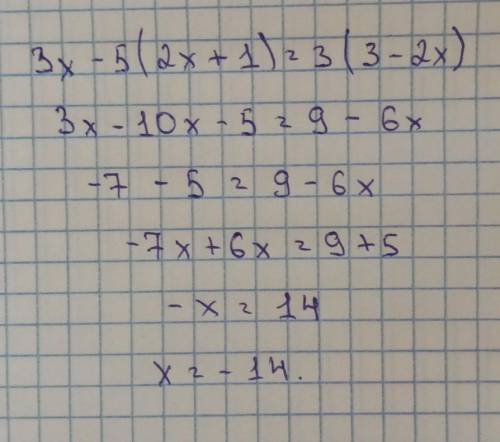 3x - 5(2x + 1) = 3(3 - 2x)
3x - 10x - 5 = 9 - 6x
-7 - 5 = 9 - 6x
-7x + 6x = 9 + 5
-x = 14
x = -14.